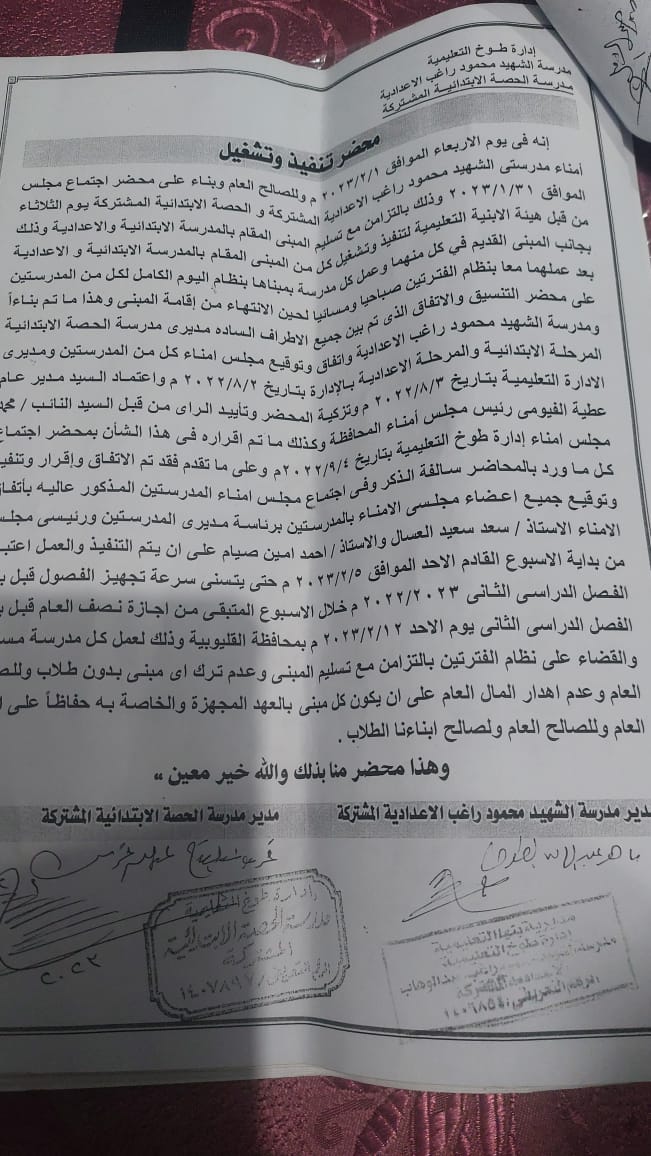 إدارة طوخ التعليمية
مدرسة الشهيد محمود راغب الاعدادية
مدرسة الحصة الابتدائية المشتركة
محضر تنفيذ وتشغيل
إنه فى يوم الاربعاء الموافق ٢٠٢٣/٢/١ م وللصالح العام وبناء على محضر اجتماع مجلس
أمناء مدرستى الشهيد محمود راغب الاعدادية المشتركة و الحصة الابتدائية المشتركة يوم الثلاثاء
الموافق ٢٠٢٣/١/٣١ وذلك بالتزامن مع تسليم المبنى المقام بالمدرسة الابتدائية والاعدادية وذلك
من قبل هيئة الابنية التعليمية لتنفيذ وتشغيل كل من المبنى المقام بالمدرسة الابتدائية و الاعدادية
بجانب المبنى القديم في كل منهما وعمل كل مدرسة بمبناها بنظام اليوم الكامل لكل من المدرستين
بعد عملهما معا بنظام الفترتين صباحيا ومسائيا لحين الانتهاء من إقامة المبنى وهذا ما تم بناءاً
على محضر التنسيق والاتفاق الذى تم بين جميع الاطراف الساده مديرى مدرسة الحصة الابتدائية
ومدرسة الشهيد محمود راغب الاعدادية واتفاق وتوقيع مجلس امناء كل من المدرستين ومديرى
المرحلة الابتدائية والمرحلة الاعدادية بالإدارة بتاريخ ٢٠٢٢/٨/٢ م واعتماد السيد مدير عام
الادارة التعليمية بتاريخ ٢٠٢٢/٨/٣ م وتزكية المحضر وتأييد الراى من قبل السيد النائب /
عطية الفيومى رئيس مجلس أمناء المحافظة وكذلك ما تم اقراره فى هذا الشأن بمحضر اجتماع
مجلس امناء إدارة طوخ التعليمية بتاريخ ٢٠٢٢/٩/٤م وعلى ما تقدم فقد تم الاتفاق وإقرار
كل ما ورد بالمحاضر سالفة الذكر وفى اجتماع مجلس امناء المدرستين المذكور عاليه
وتوقيع جميع اعضاء مجلسى الامناء بالمدرستين برئاسة مديرى المدرستين ورئيسى
الامناء الاستاذ / سعد سعيد العسال والاستاذ / احمد امين صيام على ان يتم التنفيذ والعمل
من بداية الاسبوع القادم الاحد الموافق ٢٠٢٣/٢/٥ م حتى يتسنى سرعة تجهيز الفصول قبل
الفصل الدراسى الثانى ٢٠٢٢/٢٠٢٣ م خلال الاسبوع المتبقى من اجازة نصف العام قبل
الفصل الدراسى الثانى يوم الاحد ٢٠٢٣/٢/١٢ م بمحافظة القليوبية وذلك لعمل كل مدرسة
والقضاء على نظام الفترتين بالتزامن مع تسليم المبنى وعدم ترك اى مبنى بدون طلاب
العام وعدم اهدار المال العام على ان يكون كل مبنى بالعهد المجهزة والخاصة به حفاظاً على
العام وللصالح العام ولصالح ابناءنا الطلاب .
وهذا محضر منا بذلك والله خير معين ،،
مدير مدرسة الشهيد محمود راغب الاعدادية المشتركة
مدير مدرسة الحصة الابتدائية المشتركة
إدارة طوخ التعليمية
مدرسة الحصة الابتدائية
المشتركة
مديرية
إدارة طوخ التعليمية
٢٠٢٣